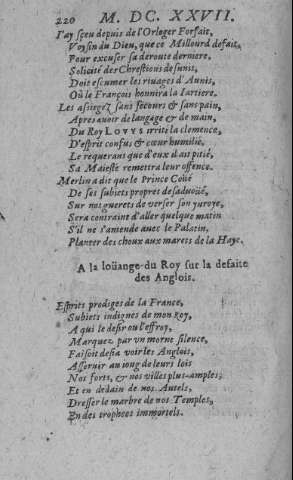 220 M. DC. XXVII.
I'ay sçeu depuis de l'Orloger Forfait,
Voysin du Dieu, que ce Millourd defait,
Pour excuser sa deroute derniere,
Solicité des Chrestiens desunis,
Doit escumer les riuages d'Aunis,
Où le François honnira la Iartiere.
Les assiegez sans secours & sans pain,
Apres auoir de langage & de main,
Du Roy LOVYS irrité la clemence,
D'esprit confus & cœur humilié,
Le requerans que d'eux il ait pitié,
Sa Maiesté remettra leur offence.
Merlin a dit que le Prince
De ses subiets propres desaduoüé,
Sur nos guerets de verser son yuroye,
Sera contraint d'aller quelque matin
S'il ne s'amende auec le Palatin,
Planter des choux aux marets de la Haye.
A la loüange du Roy sur la defaite
des Anglois.
Esprits prodiges de la France,
Subiets indignes de mon Roy,
A qui le desir ou l'effroy,
Marquez par vn morne silence,
Faisoit desia voir les Anglois,
Asseruir au ioug de leurs lois
Nos forts, & nos villes plus amples;
Et en dédain de nos Autels,
Dresser le marbre de nos Temples,
En des trophees immortels.